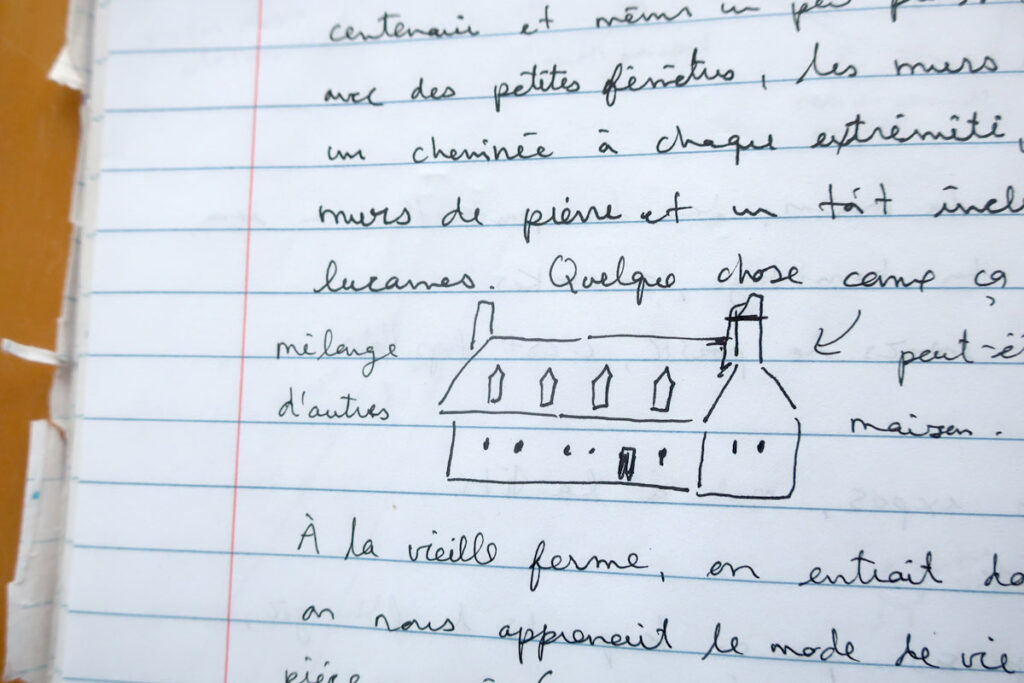 centenaire et même un peu
avec des petites fénêtres, les murs
un cheminée à chaque extrémité,
murs de pierre et un toît incl
lucarnes. Quelque chose come ça
mélange
d'autres
peut-êt
maison.
À la vieille ferme, on entrait da
on nous apprenait le mode de vie